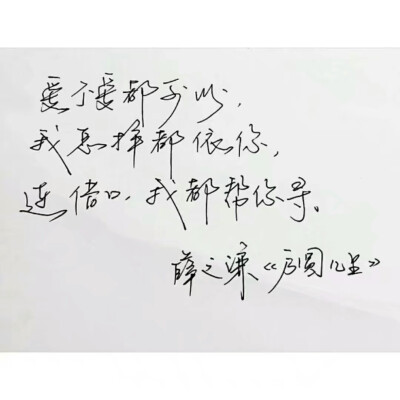 爱不爱都可以,
我怎样都依你,
连借口,我都帮你寻。
薛之谦《方圆几里》